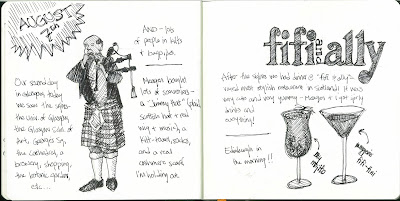 AUGUST
7TH
Our second day
in Glasgow, today
we saw the sights-
the Univ. of Glasgow,
the Glasgow School of
Art, George's Sq,
the Cathedral, a
brewery, shopping,
the botanic garden,
etc...
AND - lots
of people in kilts
+ bagpipes
Meagan bought
lots of souvenirs -
a "Jimmy Hat" (plaid
Scottish hat + red
wig + music), a
kilt-towel, socks,
and a real
cashmere scarf
I'm holding at
fifi and ally
After the sights we had dinner @ "fifi & ally"
restaurant in Scotland! It was
very cute and very yummy - Meagan + I got girly
drinks and
everything!
Edinburgh in
the morning!!
my
mojito
Meagan's
fifi-tini